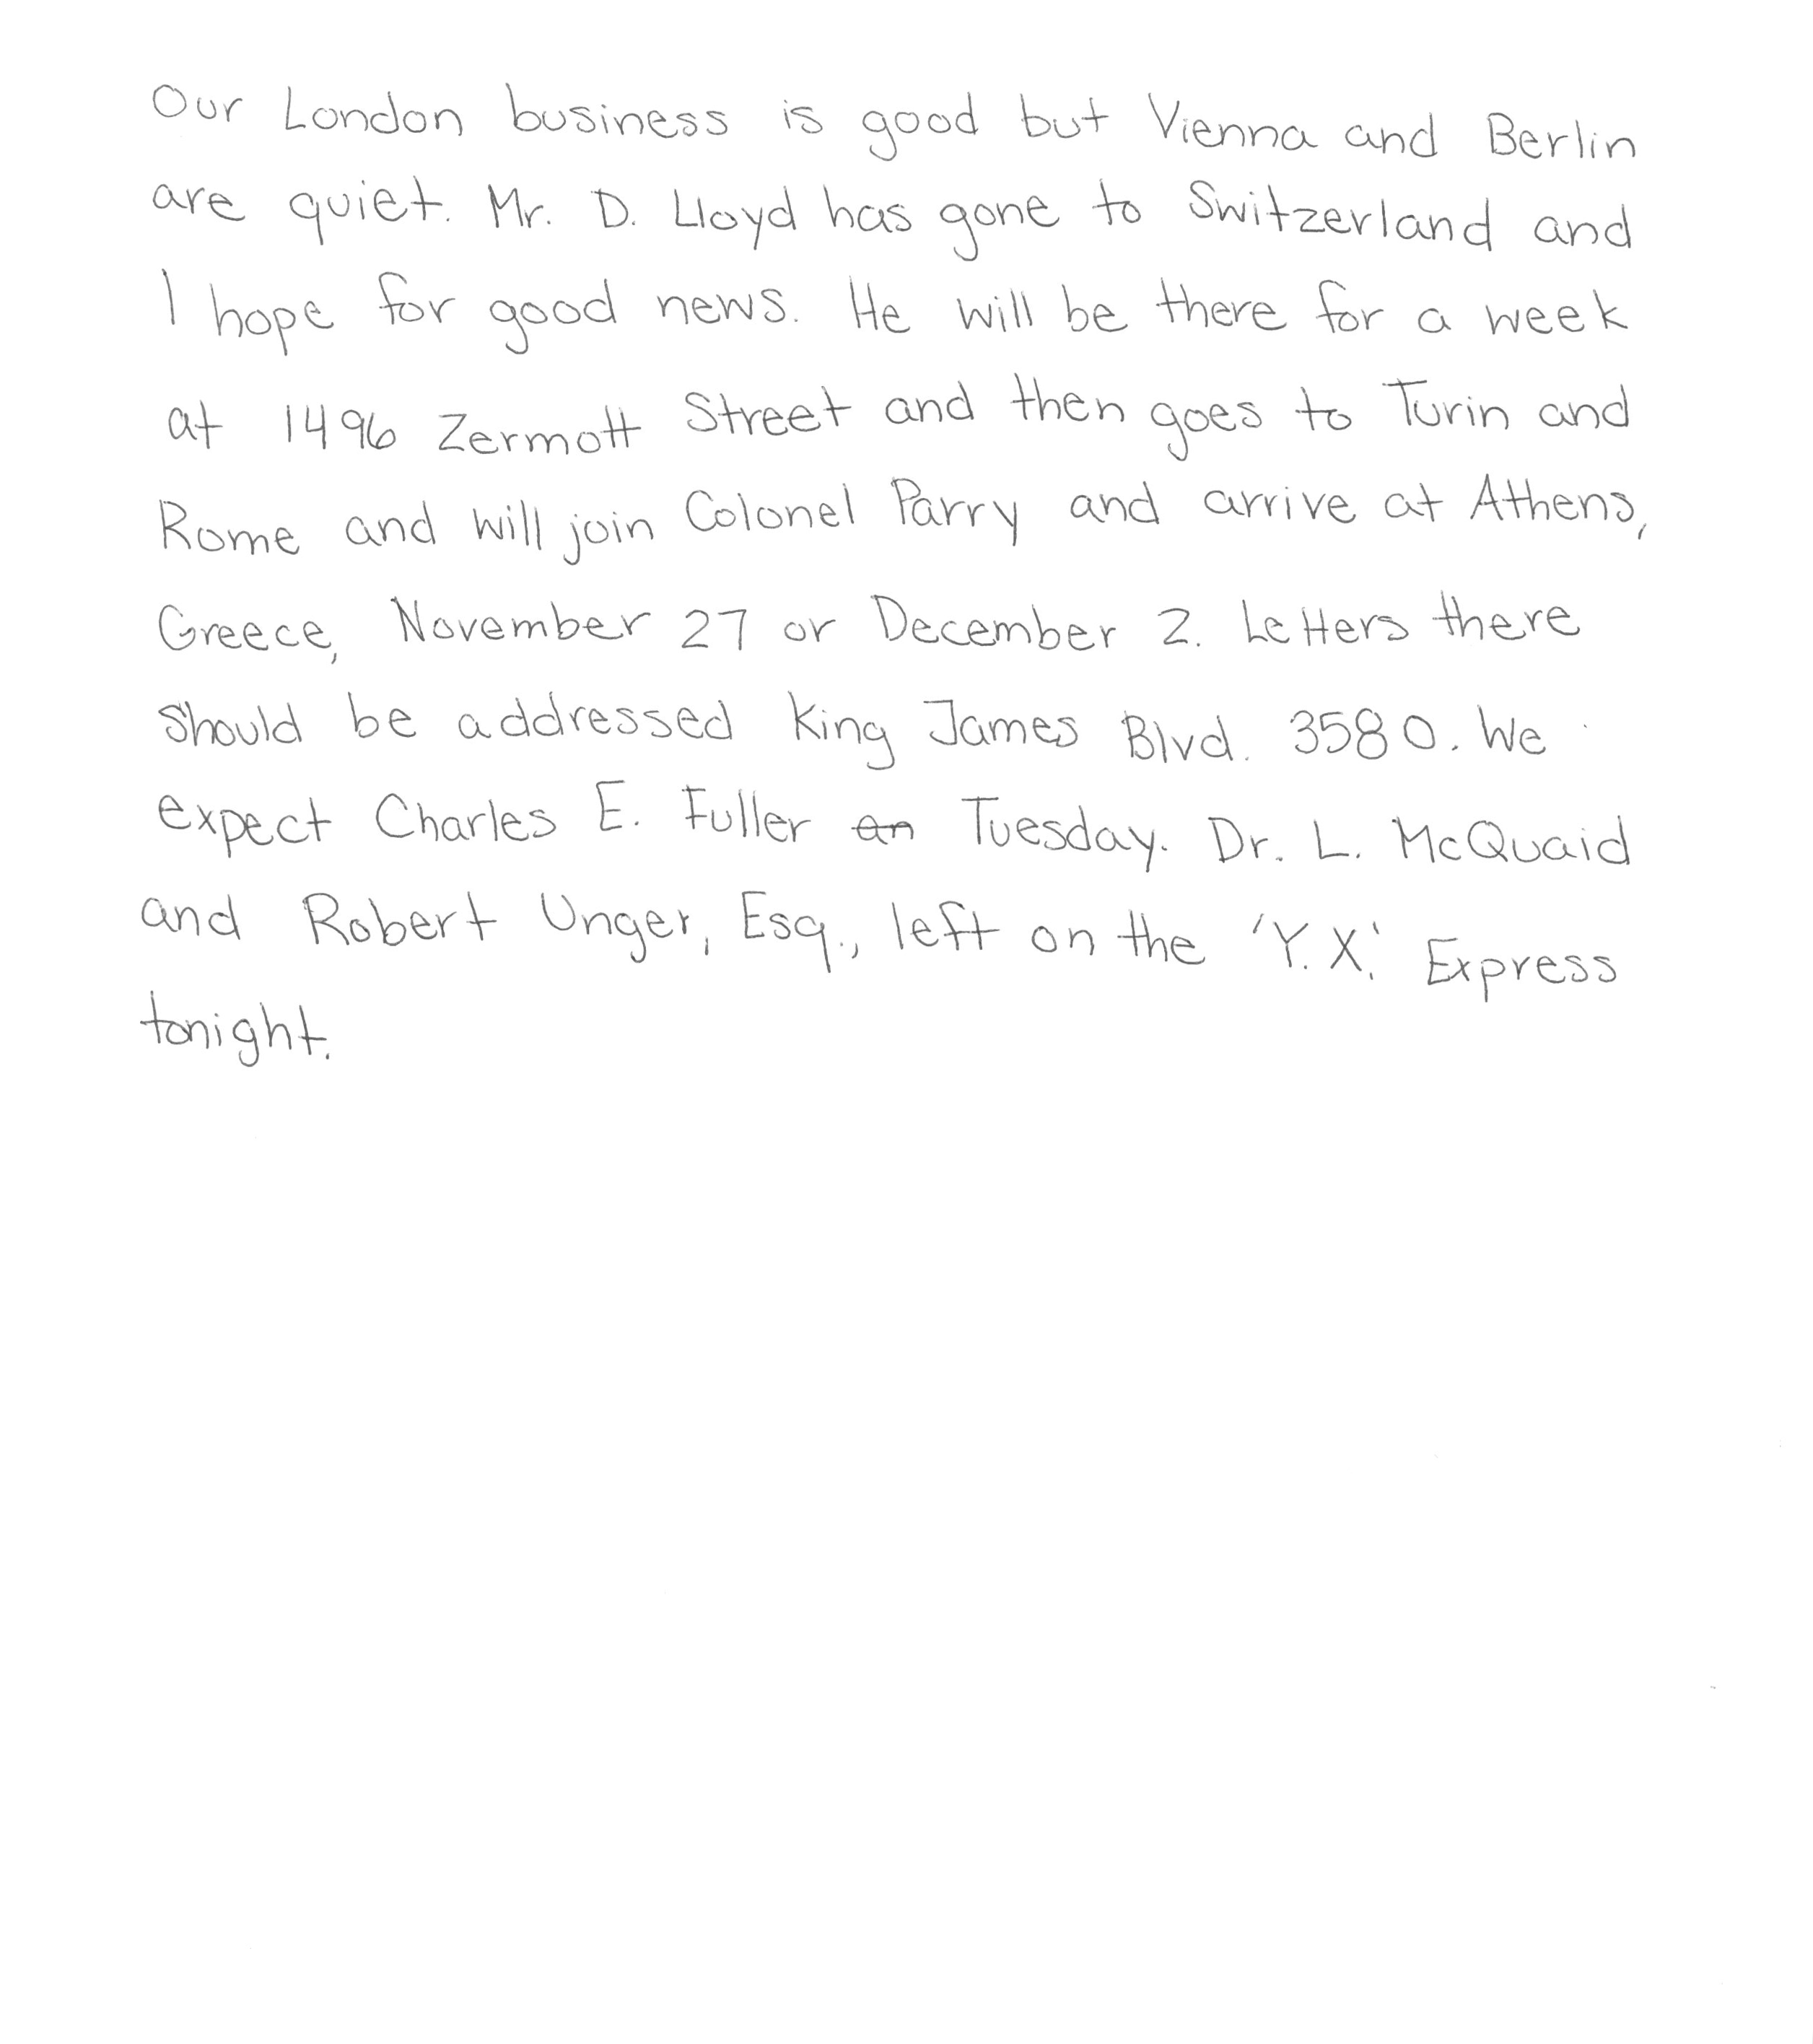 Our London business is good but Vienna and Berlin
are quiet. Mr. D. Lloyd has gone to Switzerland and
I hope for good news. He will be there for a week
at 1496 Zermott Street and then goes to Turin and
Rome and will join Colonel Parry and arrive at Athens,
Greece, November 27 or December 2. Letters there
should be addressed King James Blvd. 3580. We
expect Charles E. Fuller on Tuesday. Dr. L. McQuaid
and Robert Unger, Esq., left on the 'Y.X.' Express
tonight.